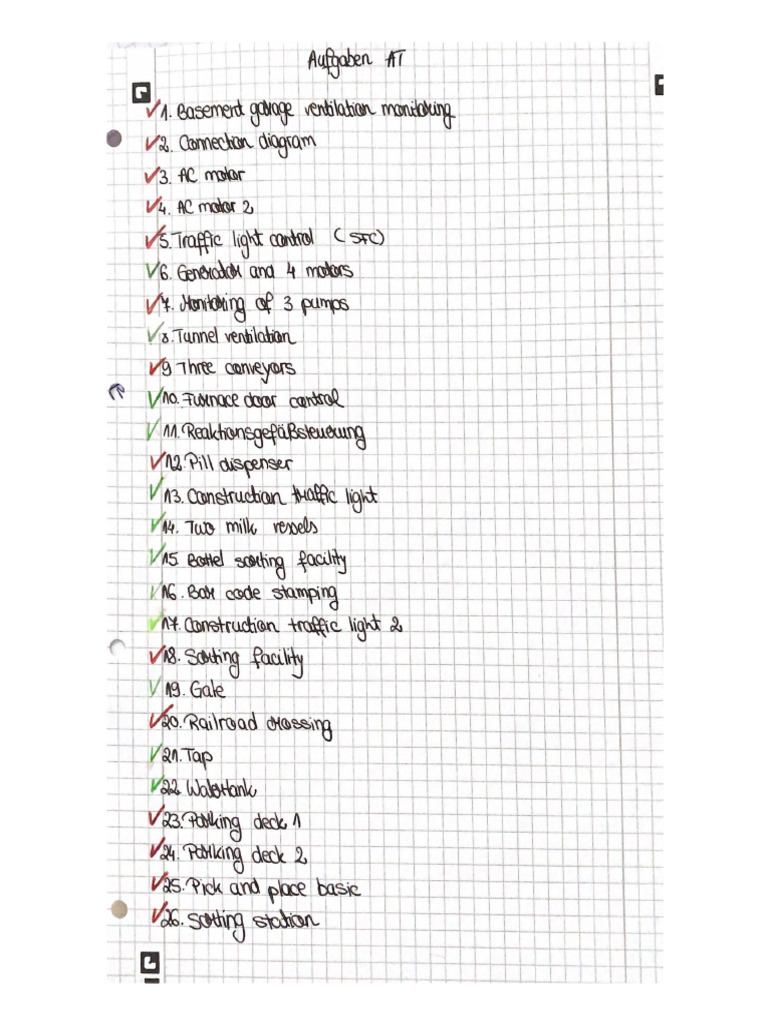 Aufgaben AT
1. Basement garage ventilation monitoring
2. Connection diagram
3. AC motor
4. AC motor 2
5. Traffic light control (SFC)
6. Generator and 4 motors
7. Monitoring of 3 pumps
8. Tunnel ventilation
9 Three conveyors
10. Furnace door control
11. Reaktionsgefäßsteuerung
12. Pill dispenser
13. Construction traffic light
14. Two milk vessels
15. Bottel sorting facility
16. Bar code stamping
17. Construction traffic light 2
18. Sorting facility
19. Gate
20. Railroad crossing
21. Tap
22. Watertank
23. Parking deck 1
24. Parking deck 2
25. Pick and place basic
26. Sorting station